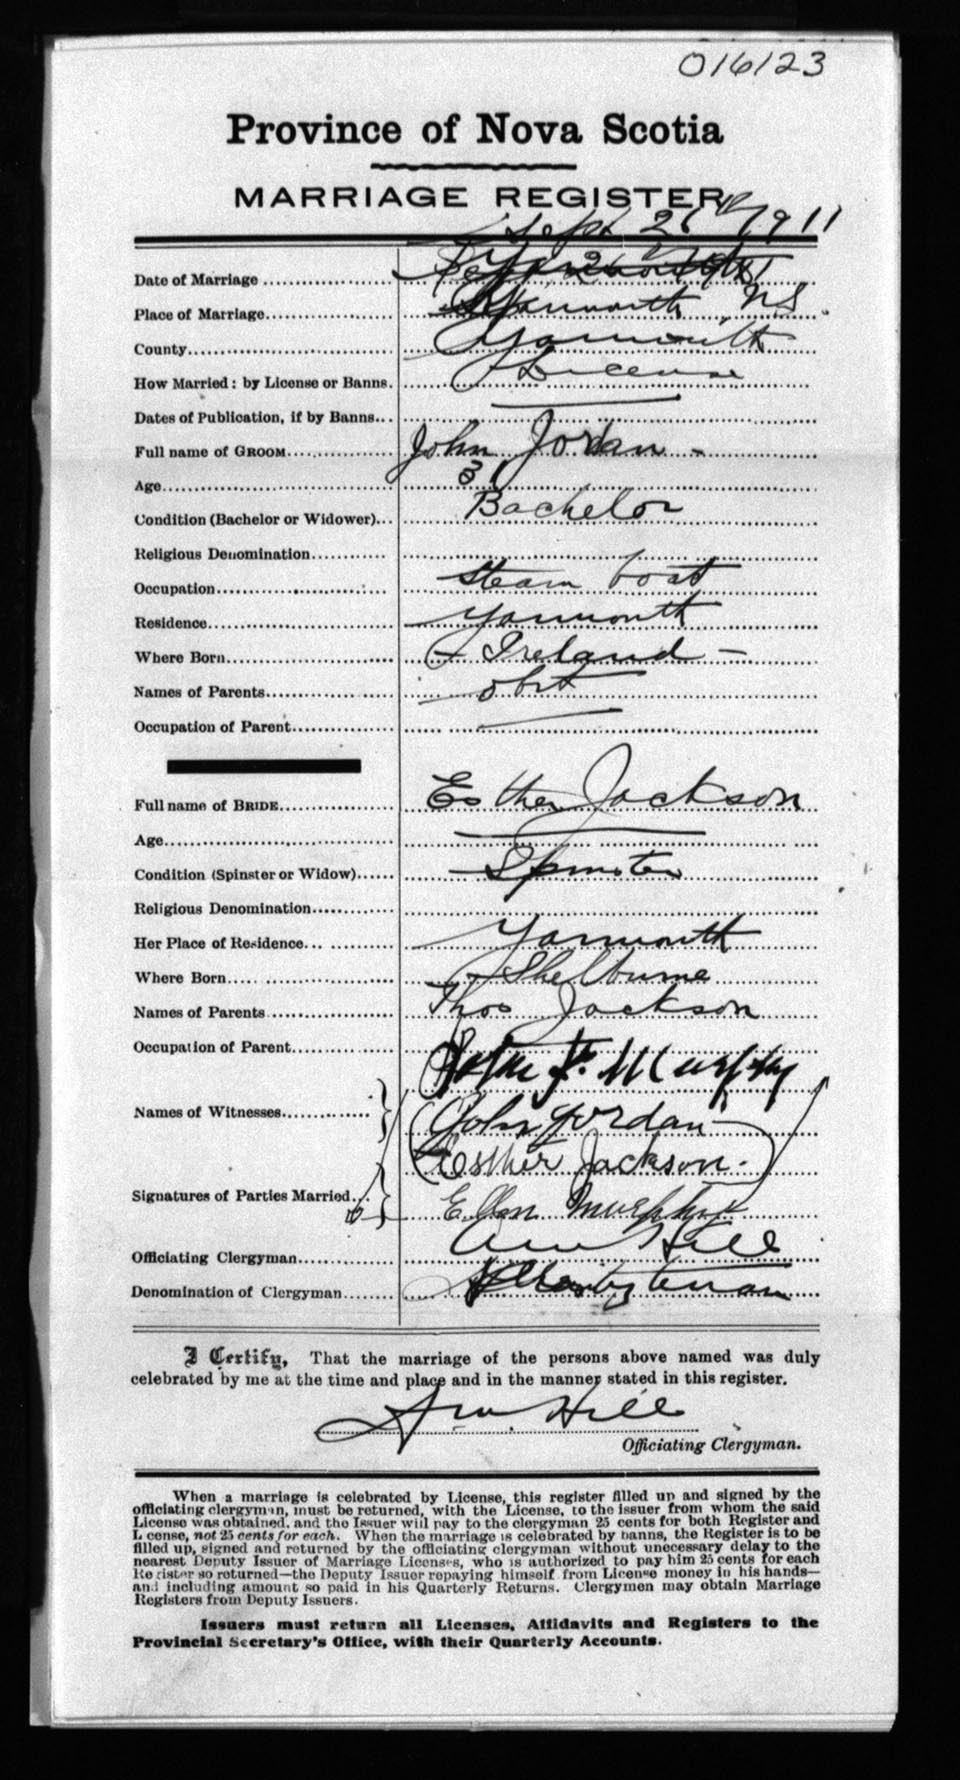 016123
Province of Nova Scotia
MARRIAGE REGISTER
Sept 26th 1911
Date of Marriage
Place of Marriage Yarmouth NS.
County Yarmouth
How Married: by License or Banns. License
Dates of Publication, if by Banns
Full name of GROOM John Jordan -
Age 31
Condition (Bachelor or Widower) Bachelor
Religious Denomination
Occupation Steam boat
Residence Yarmouth
Where Born Ireland -
Names of Parents
Occupation of Parent
Full name of BRIDE Esther Jackson
Age
Condition (Spinster or Widow) Spinster
Religious Denomination
Her Place of Residence Yarmouth
Where Born Shelburne
Names of Parents Thos Jackson
Occupation of Parent
John F. Murphy
Names of Witnesses John Jordan
Esther Jackson.
Signatures of Parties Married
Ellen Murphy
Officiating Clergyman Hill
Denomination of Clergyman Presbyterian
I Certify, That the marriage of the persons above named was duly
celebrated by me at the time and place and in the manner stated in this register.
Hill
Officiating Clergyman.
When a marriage is celebrated by License, this register filled up and signed by the
officiating clergyman, must be returned, with the License, to the issuer from whom the said
License was obtained, and the Issuer will pay to the clergyman 25 cents for both Register and
License, not 25 cents for each. When the marriage is celebrated by banns, the Register is to be
filled up, signed and returned by the officiating clergyman without unecessary delay to the
nearest Deputy Issuer of Marriage Licenses, who is authorized to pay him 25 cents for each
Register so returned—the Deputy Issuer repaying himself from License money in his hands—
and including amount so paid in his Quarterly Returns. Clergymen may obtain Marriage
Registers from Deputy Issuers.
Issuers must return all Licenses, Affidavits and Registers to the
Provincial Secretary's Office, with their Quarterly Accounts.